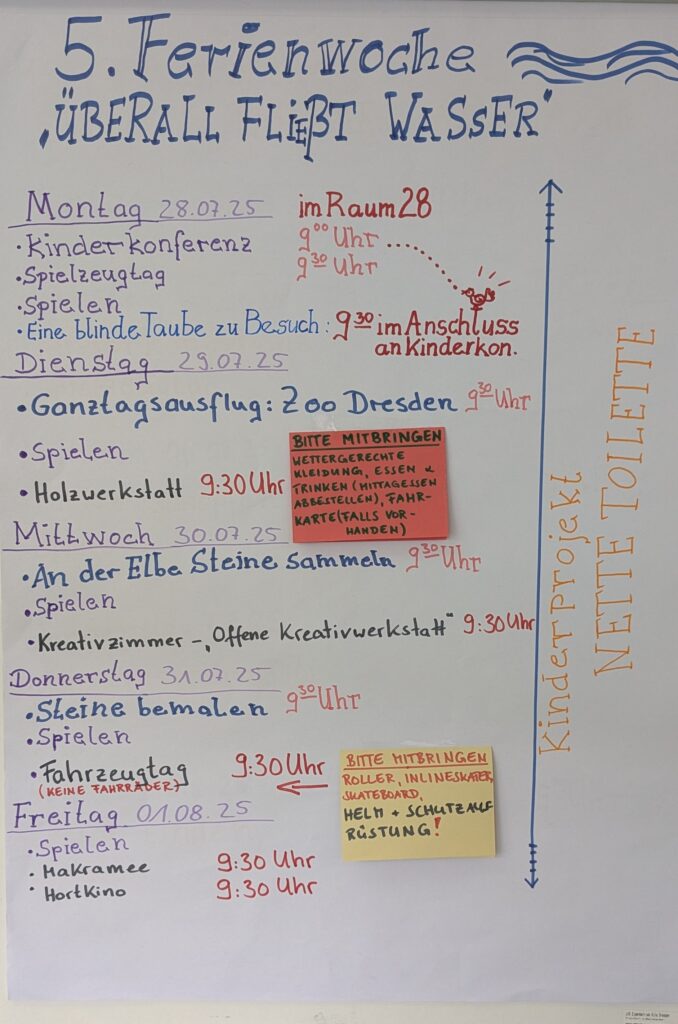 5. Ferienwoche
„ÜBERALL FLIEßT WASSER"
Montag 28.07.25 im Raum 28
• Kinderkonferenz 9⁰⁰ Uhr
• Spielzeugtag 9³⁰ Uhr
• Spielen
• Eine blinde Taube zu Besuch: 9³⁰ im Anschluss
an Kinderkon.
Dienstag 29.07.25
• Ganztagsausflug: Zoo Dresden 9³⁰ Uhr
• Spielen
• Holzwerkstatt 9:30 Uhr
BITTE MITBRINGEN
WETTERGERECHTE
KLEIDUNG, ESSEN &
TRINKEN (MITTAGESSEN
ABBESTELLEN), FAHR-
KARTE (FALLS VOR-
HANDEN)
Mittwoch 30.07.25
• An der Elbe Steine sammeln 9³⁰ Uhr
• Spielen
• Kreativzimmer – „Offene Kreativwerkstatt" 9:30 Uhr
Donnerstag 31.07.25
• Steine bemalen 9³⁰ Uhr
• Spielen
• Fahrzeugtag 9:30 Uhr
(KEINE FAHRRÄDER)
BITTE MITBRINGEN
ROLLER, INLINESKATER,
SKATEBOARD,
HELM + SCHUTZAUS
RÜSTUNG!
Freitag 01.08.25
• Spielen
• Makramee 9:30 Uhr
• HortKino 9:30 Uhr
Kinderprojekt
NETTE TOILETTE